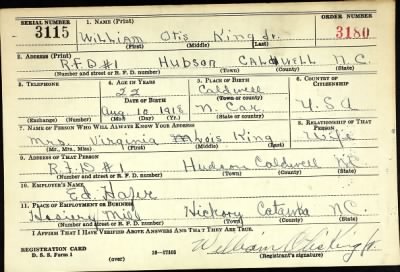 SERIAL NUMBER 1. NAME (Print) ORDER NUMBER
3115 William Otis King Jr. 3180
(First) (Middle) (Last)
2. ADDRESS (Print)
R.F.D #1 Hudson Caldwell N.C.
(Number and street or R. F. D. number) (Town) (County) (State)
3. TELEPHONE 4. AGE IN YEARS 5. PLACE OF BIRTH 6. COUNTRY OF CITIZENSHIP
22 Caldwell
DATE OF BIRTH (Town or county)
Aug. 10, 1918 N. Car. U.S.A
(Exchange) (Number) (Mo.) (Day) (Yr.) (State or country)
7. NAME OF PERSON WHO WILL ALWAYS KNOW YOUR ADDRESS 8. RELATIONSHIP OF THAT PERSON
Mrs. Virginia King Wife
(Mr., Mrs., Miss) (First) (Middle) (Last)
9. ADDRESS OF THAT PERSON
R.F.D #1 Hudson Caldwell N.C.
(Number and street or R. F. D. number) (Town) (County) (State)
10. EMPLOYER'S NAME
Ed.
11. PLACE OF EMPLOYMENT OR BUSINESS
Hosiery Mill Hickory Catawba N.C.
(Number and street or R. F. D. number) (Town) (County) (State)
I AFFIRM THAT I HAVE VERIFIED ABOVE ANSWERS AND THAT THEY ARE TRUE.
REGISTRATION CARD William O King Jr.
D. S. S. Form 1 (over) (Registrant's signature)